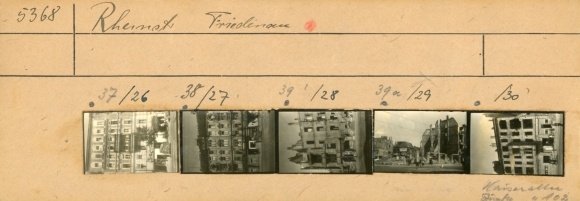 5368 Rheinstr. Friedenau
37 /26 38 /27 39 /28 39a /29 /30
Kaiserallee